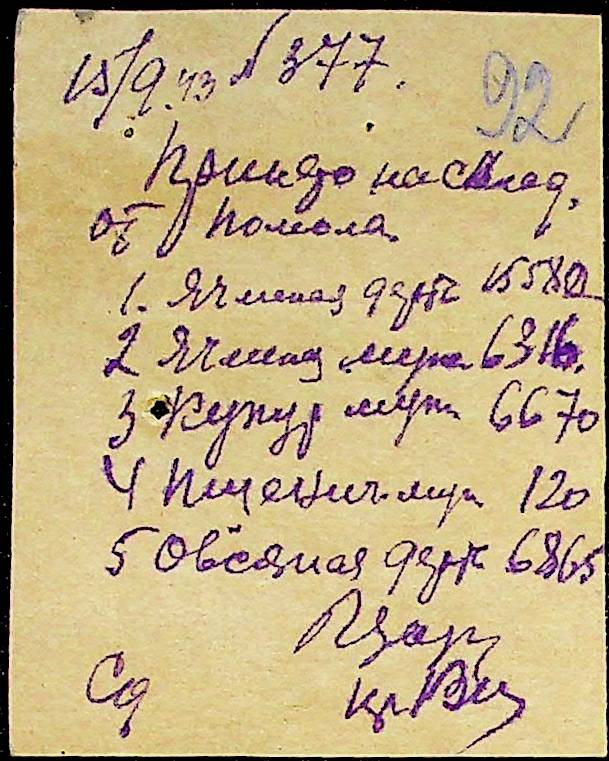 15/9.43 № 377.
92
Принято на склад.
от помола
1. Ячменая дерть 15580
2 Ячмная мука 6316.
3 Кукур мука 6670
4 Пшенич. мук 120
5 Овсяная дерть 6865
Сд